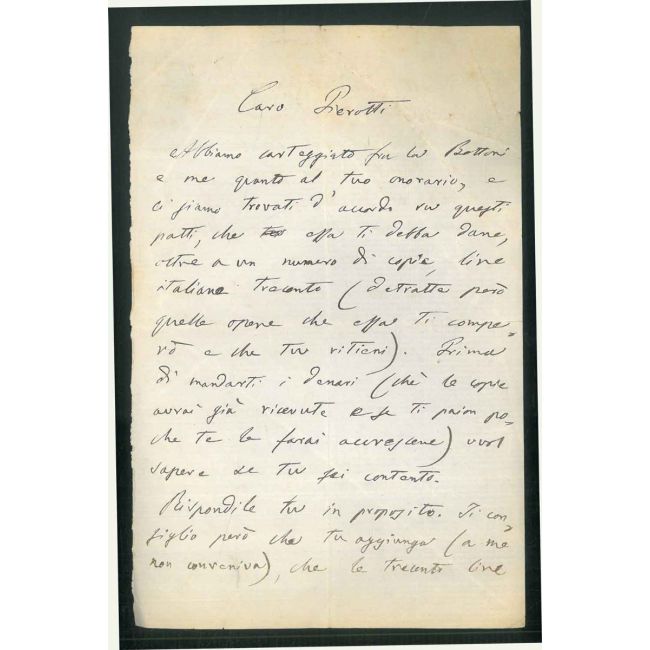 Caro Pierotti
Abbiamo carteggiato fra la Bottoni
e me quanto al tuo onorario, e
ci siamo trovati d'accordo su questi
patti, che essa ti debba dare,
oltre a un numero di copie, lire
italiane trecento (detratte però
quelle opere che essa ti compe-
rò e che tu ritieni). Prima
di mandarti i denari (chè le copie
avrai già ricevute e se ti paion po-
che te le farai accrescere) vuol
sapere se tu sei contento.
Rispondile tu in proposito. Ti con-
siglio però che tu aggiunga (a me
non conveniva), che le trecento lire